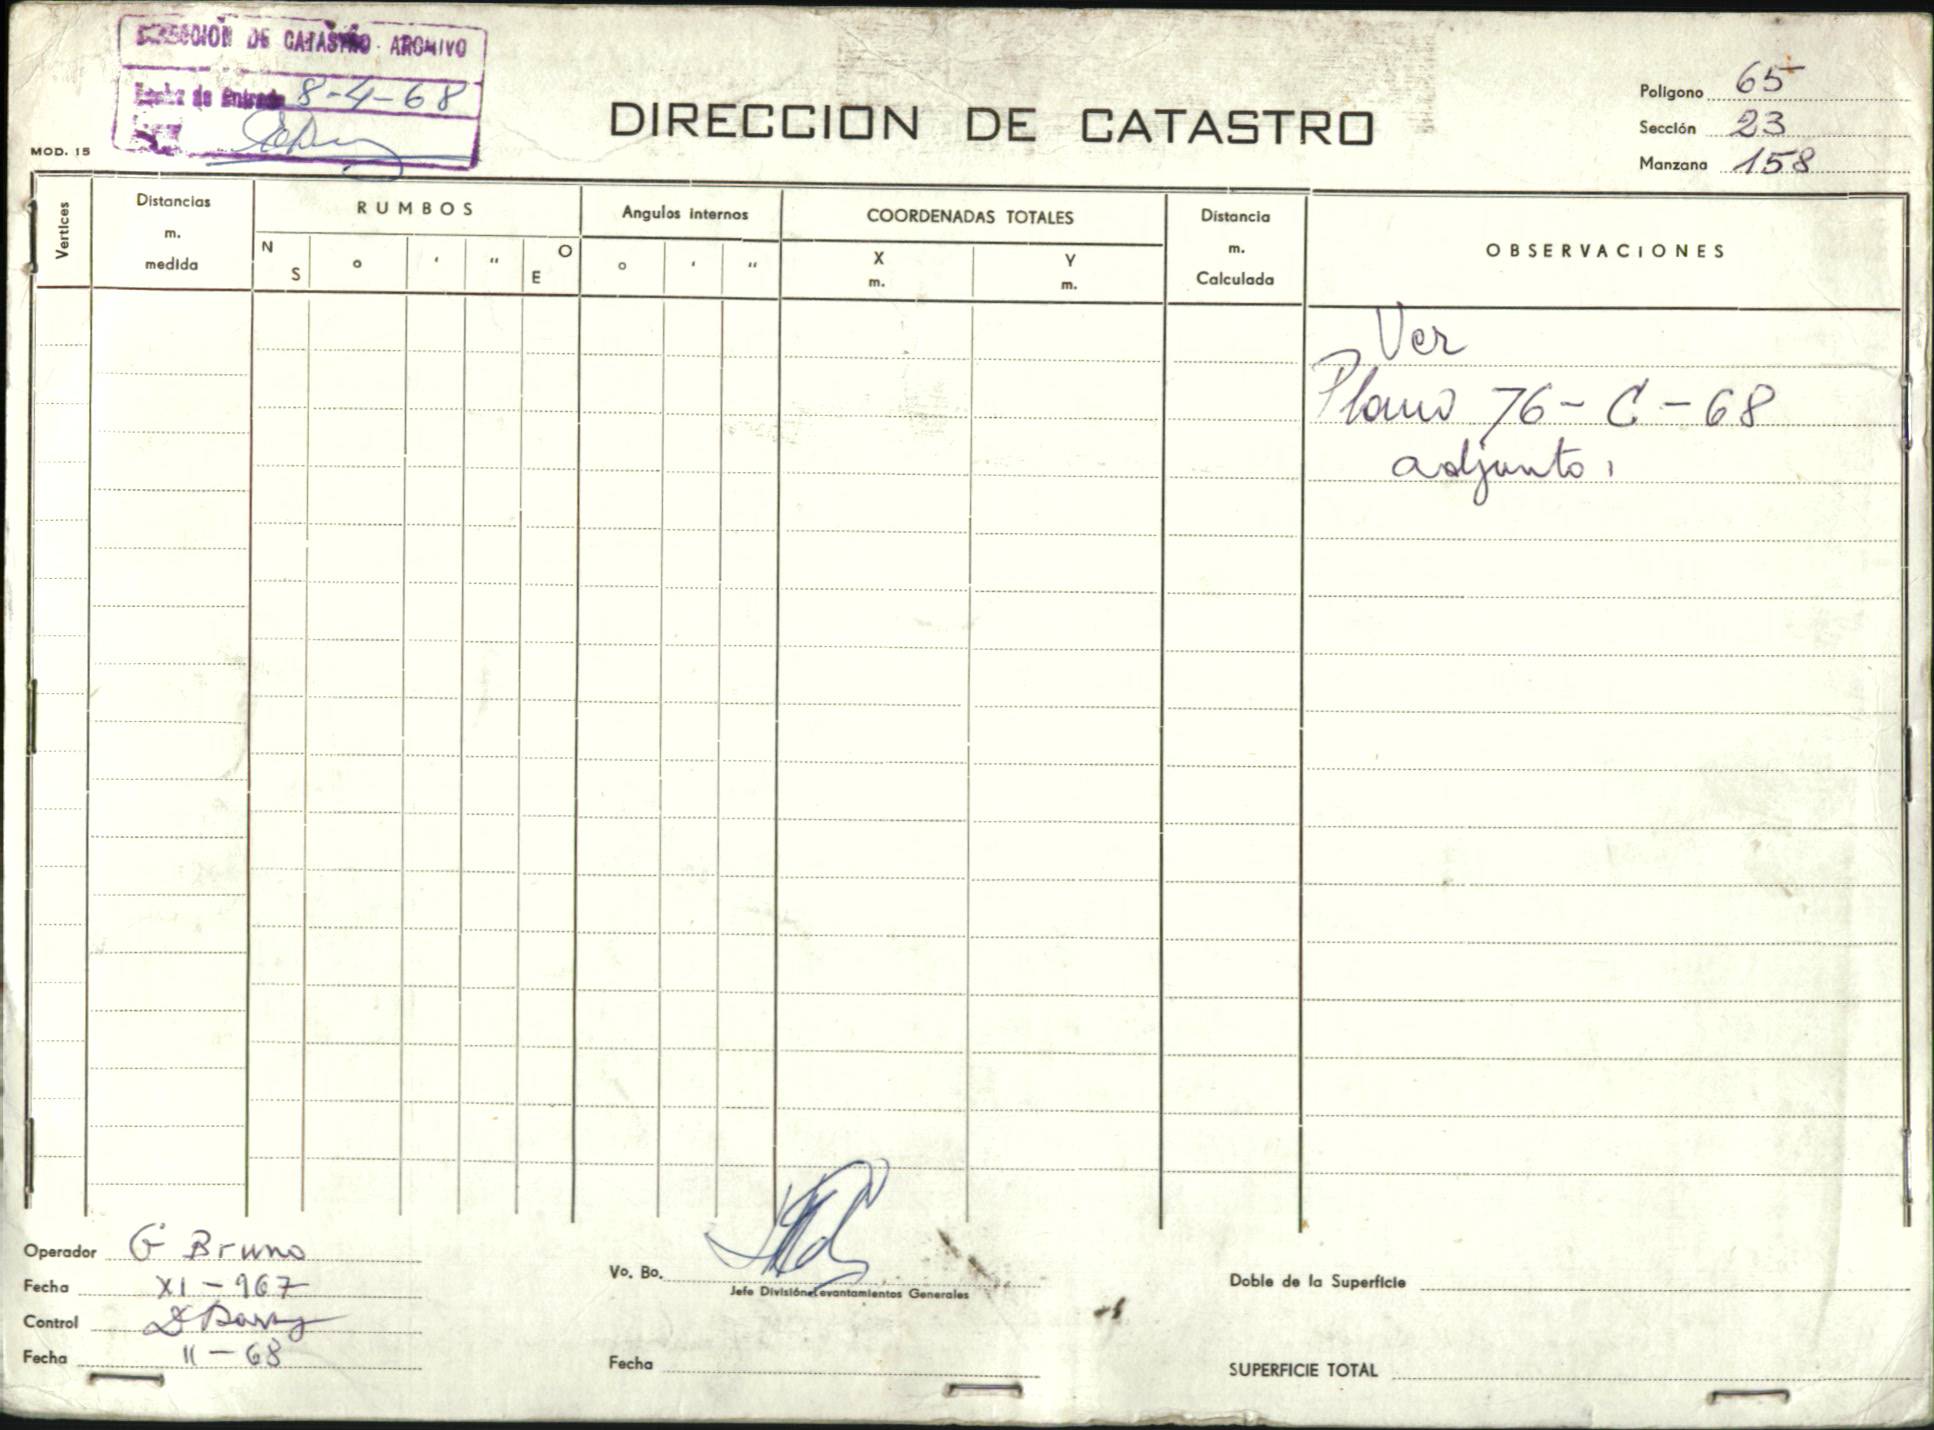 DIRECCION DE CATASTRO. ARCHIVO
Fecha de Entrada 8-4-68
MOD. 15
DIRECCION DE CATASTRO
Poligono 65
Sección 23
Manzana 158
Vertices
Distancias
m.
medida
RUMBOS
N
S
o
‘
“
O
E
Angulos internos
o
‘
“
COORDENADAS TOTALES
X
m.
Y
m.
Distancia
m.
Calculada
OBSERVACIONES
Ver
Plano 76-C-68
adjunto.
Operador G Bruno
Fecha XI-967
Control
Fecha II-68
Vo. Bo.
Jefe División Levantamientos Generales
Fecha
Doble de la Superficie
SUPERFICIE TOTAL